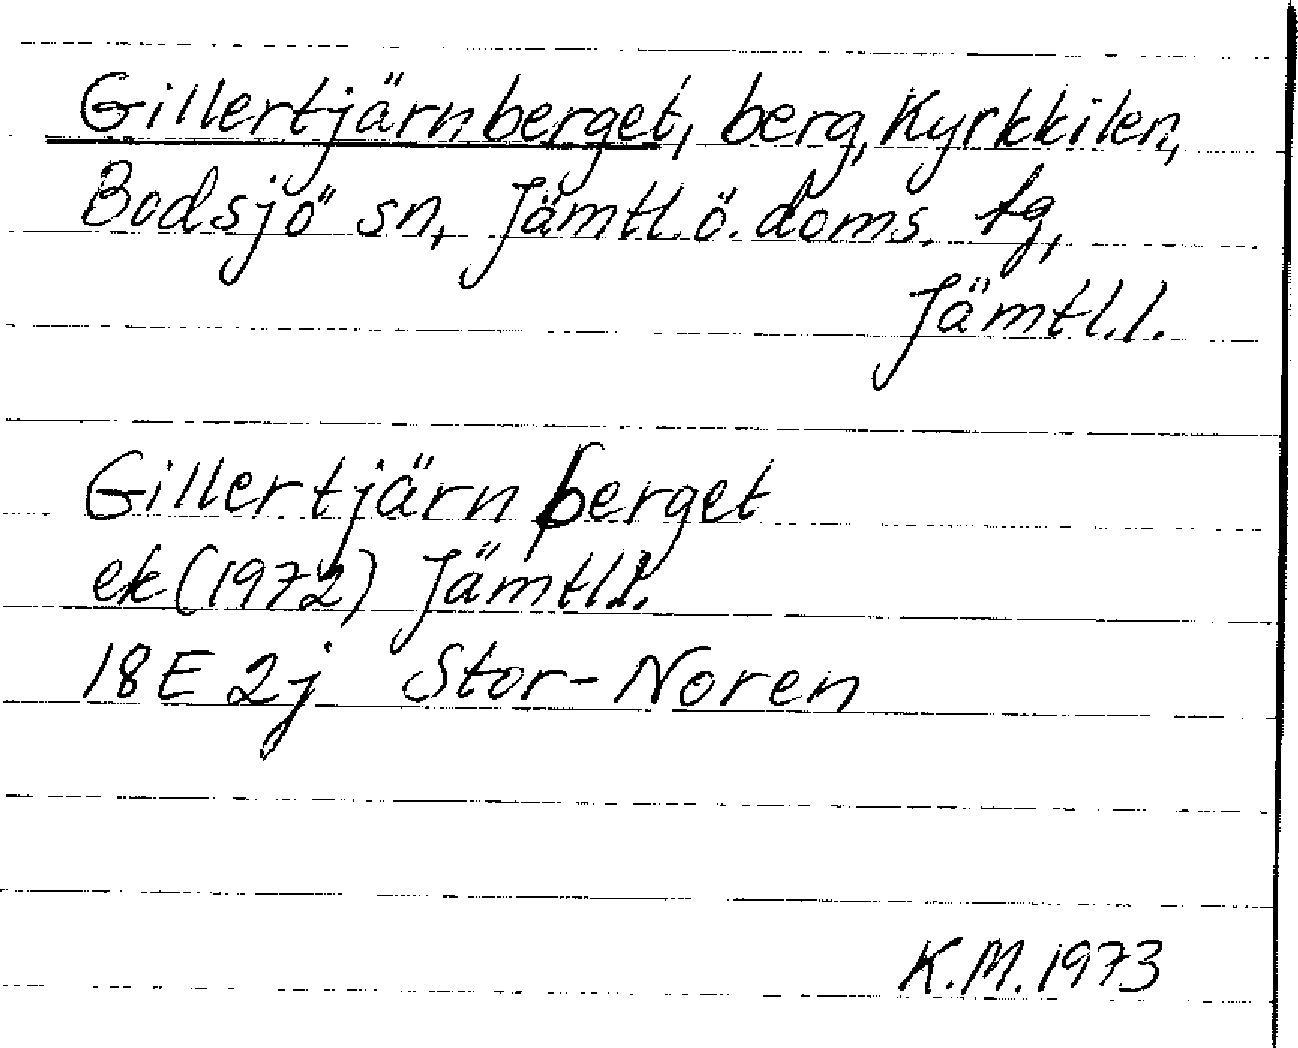 Gillertjärnberget, berg, Kyrkkilen,
Bodsjö sn, Jämtl.ö.doms. tg,
Jämtl.l.
Gillertjärnberget
ek (1972) Jämtl.l.
18E 2j Stor-Noren
K.M. 1973